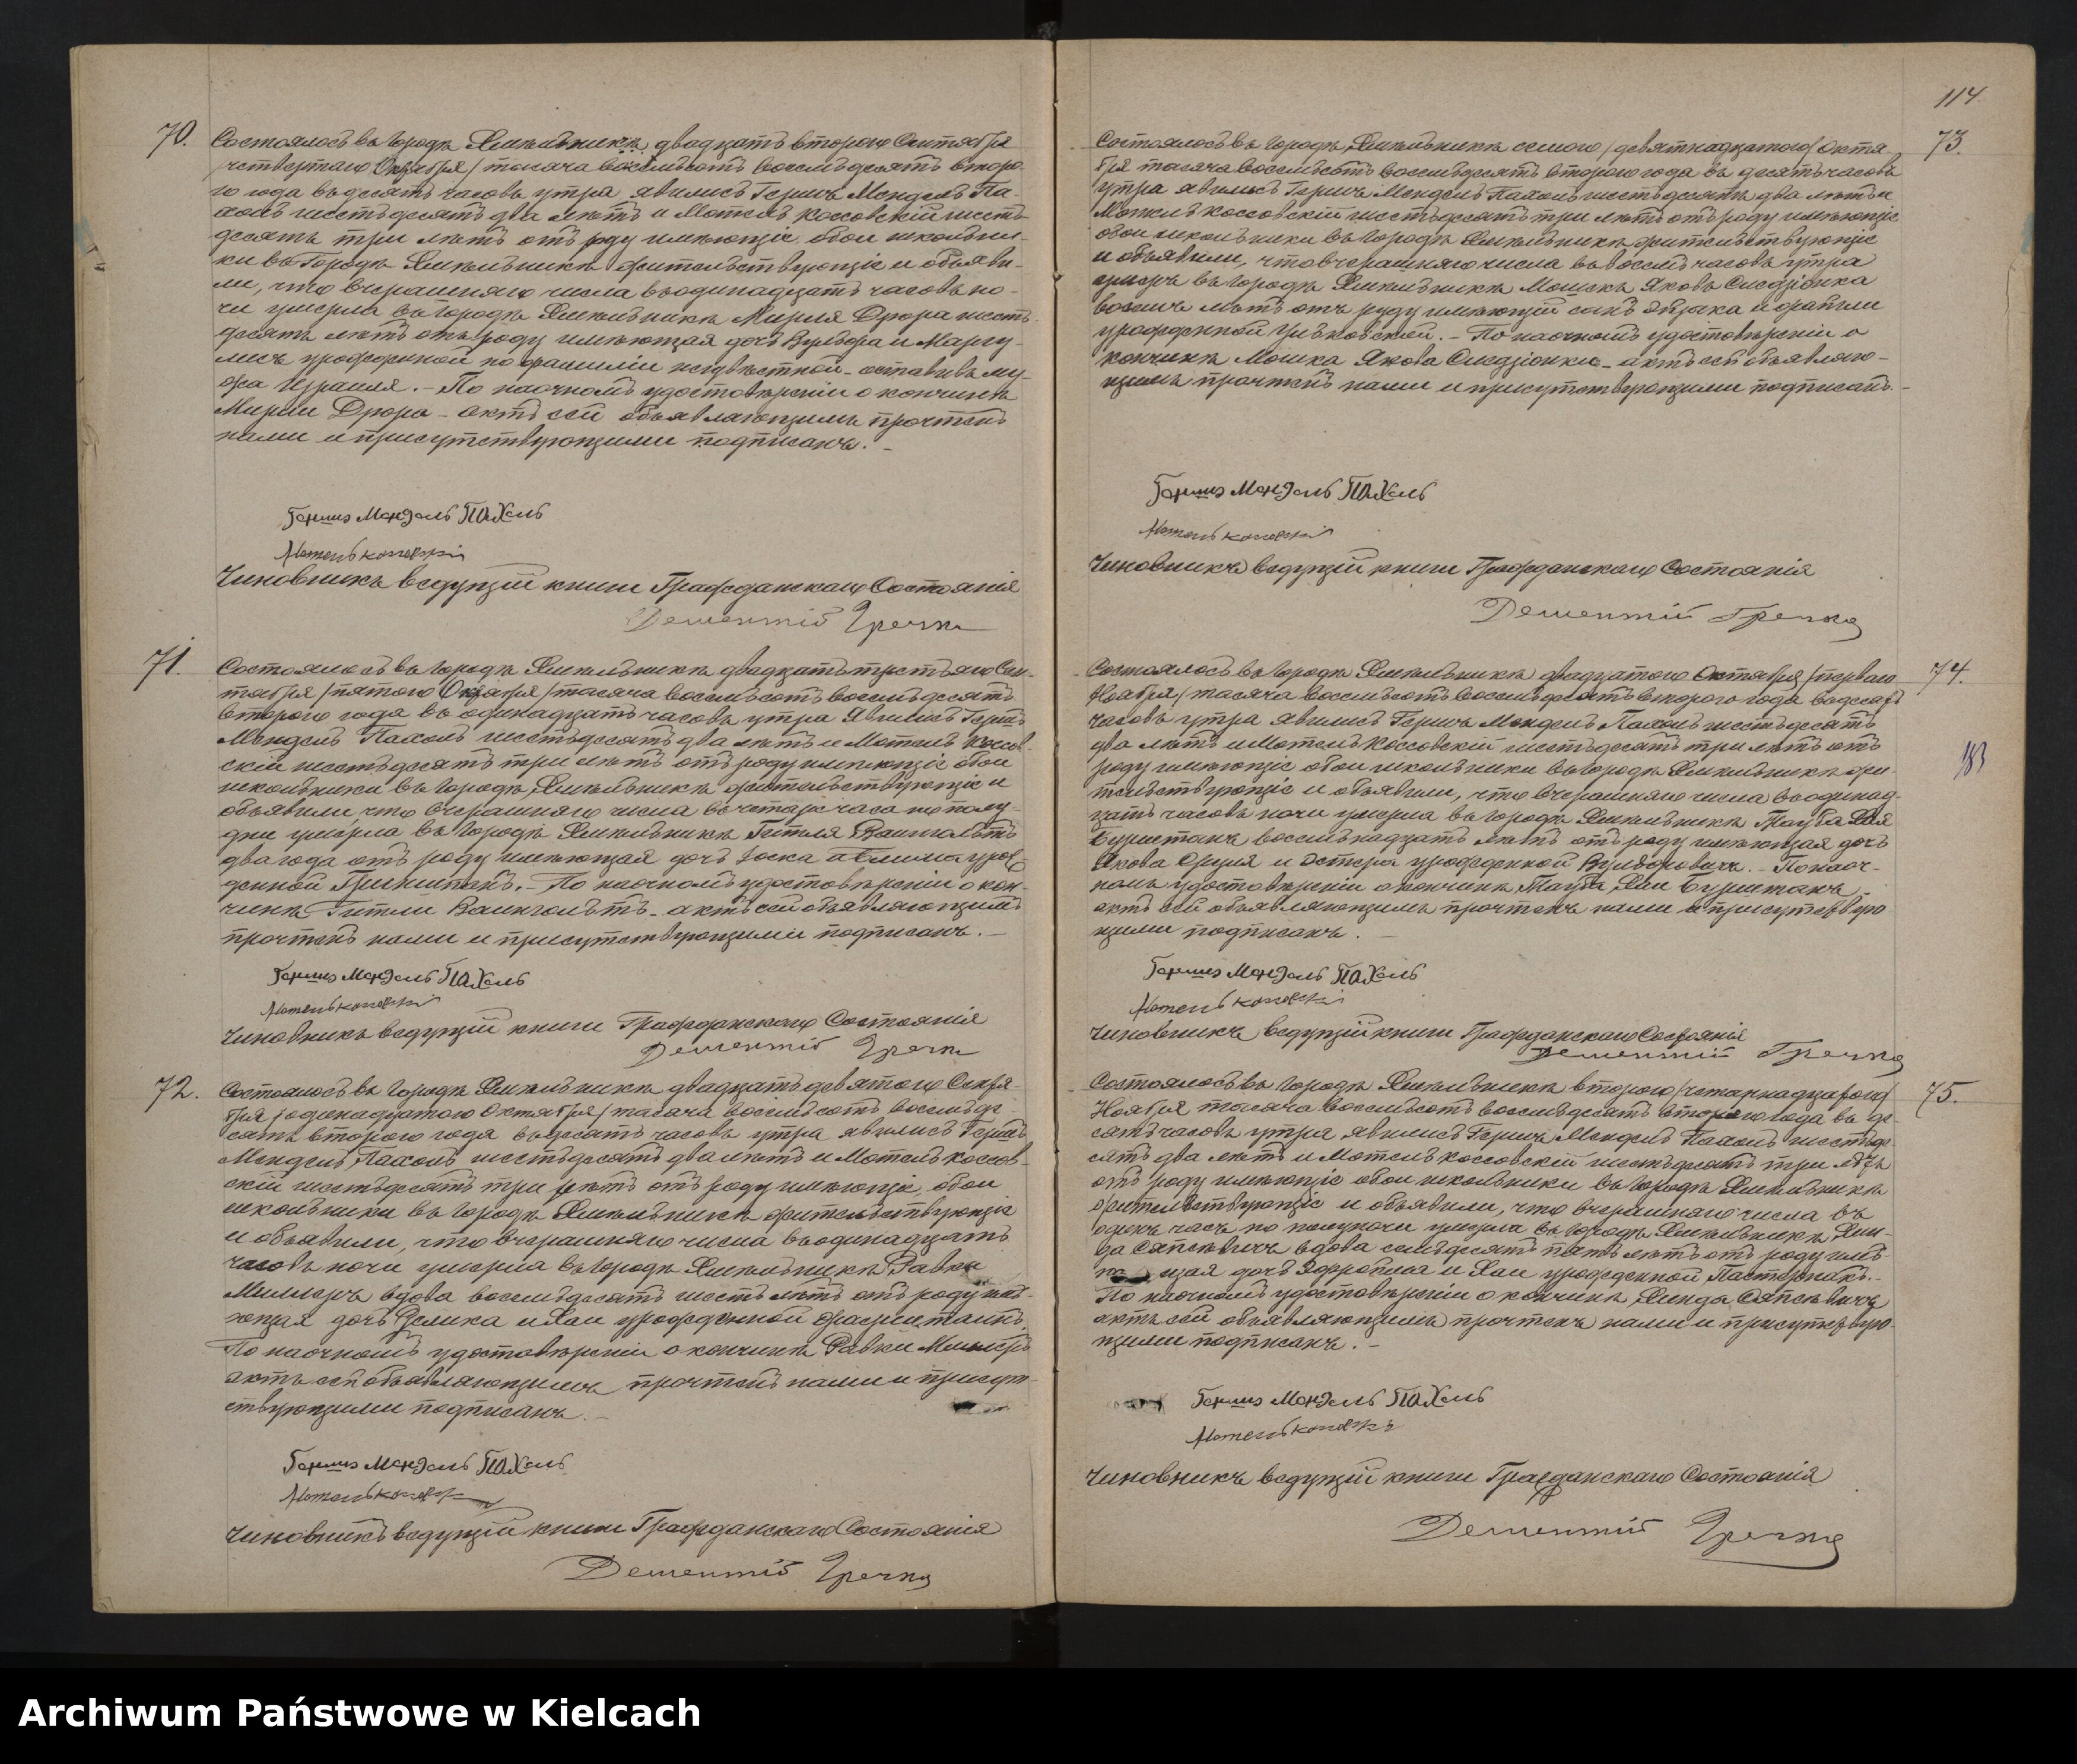 70.
Состоялось въ Городѣ Хмѣльникѣ двадцать втораго Сентября
/четвертаго Октября/ тысяча восемьсотъ восемьдесятъ второ-
го года въ десять часовъ утра явились Гершъ Мендель Па-
холь шестьдесятъ два лѣтъ и Мотель Коссовскій шесть-
десять три лѣтъ отъ роду имѣющіе обои школьни-
ки въ Городѣ Хмѣльникѣ жительствующіе и объяви-
ли, что вчерашняго числа въ одинадцать часовъ но-
чи умерла въ Городѣ Хмѣльникѣ Мирля Дрора шесть-
десять лѣтъ отъ роду имѣющая дочь Вульфа и Маргу-
лесъ урожденной по фамиліи неизвѣстной - оставивъ му-
жа Израиля. - По наочномъ удостовѣреніи о кончинѣ
Мирли Дрора - актъ сей объявляющимъ прочтенъ
нами и присутствующими подписанъ. -
Гершъ Мендель Пахоль
Мотель Коссовскій
Чиновникъ ведущій книги Гражданскаго Состоянія
Дементій Гречка
71.
Состоялось въ Городѣ Хмѣльникѣ двадцать третьяго Сен-
тября /пятого Октября/ тысяча восемьсотъ восемьдесятъ
второго года въ одинадцать часовъ утра явились Гершъ
Мендель Пахоль шестьдесятъ два лѣтъ и Мотель Коссов-
скій шестьдесятъ три лѣтъ отъ роду имѣющіе обои
школьники въ Городѣ Хмѣльникѣ жительствующіе и
объявили что вчерашняго числа въ четыре часа по полу-
дни умерла въ Городѣ Хмѣльникѣ Гитля Ваингольтъ
два года отъ роду имѣющая дочь Іоска и урож-
денной По наочномъ удостовѣреніи о кон-
чинѣ Гитли Ваинголътъ - актъ сей объявляющимъ
прочтенъ нами и присутствующими подписанъ. -
Гершъ Мендель Пахоль
Мотель Коссовскій
Чиновникъ ведущій книги Гражданскаго Состоянія
Дементій Гречка
72.
Состоялось въ Городѣ Хмѣльникѣ двадцать девятого Сентя-
бря /одинадцатого Октября/ тысяча восемьсотъ восемьде-
сятъ второго года въ десять часовъ утра явились Гершъ
Мендель Пахоль шестьдесятъ два лѣтъ и Мотель Коссов-
скій шестьдесятъ три лѣтъ отъ роду имѣющіе, обои
школьники въ Городѣ Хмѣльникѣ жительствующіе
и объявили, что вчерашняго числа въ одинадцать
часовъ ночи умерла въ Городѣ Хмѣльникѣ Равка
Миллеръ вдова восемьдесятъ шесть лѣтъ отъ роду имѣ-
ющая дочь Зелика и Хаи урожденной
По наочномъ удостовѣреніи о кончинѣ Равки Миллеръ
актъ сей объявляющимъ прочтенъ нами и присут-
ствующими подписанъ. -
Гершъ Мендель Пахоль
Мотель Коссовскій
Чиновникъ ведущій книги Гражданскаго Состоянія
Дементій Гречка
114
73.
Состоялось въ Городѣ Хмѣльникѣ семого /девятнадцатого/ Октя-
бря тысяча восемьсотъ восемьдесятъ второго года въ десять часовъ
утра явились Гершъ Мендель Пахоль шестьдесятъ два лѣтъ и
Мотель Коссовскій шестьдесятъ три лѣтъ отъ роду имѣющіе
обои школьники въ Городѣ Хмѣльникѣ жительствующіе
и объявили, что вчерашняго числа въ восемь часовъ утра
умеръ въ Городѣ Хмѣльникѣ Мошекъ Яковъ Следзіонка
восемь лѣтъ отъ роду имѣющій сынъ и
урожденной - По наочномъ удостовѣреніи о
кончинѣ Мошка Якова Следзіонки - актъ сей объявляю-
щимъ прочтенъ нами и присутствующими подписанъ. -
Гершъ Мендель Пахоль
Мотель Коссовскій
Чиновникъ ведущій книги Гражданскаго Состоянія
Дементій Гречка
74.
Состоялось въ Городѣ Хмѣльникѣ двадцатого Октября /перваго
Ноября/ тысяча восемьсотъ восемьдесятъ второго года въ десять
часовъ утра явились Гершъ Мендель Пахоль шестьдесятъ
два лѣтъ и Мотель Коссовскій шестьдесятъ три лѣтъ отъ
роду имѣющіе обои школьники въ Городѣ Хмѣльникѣ жи-
тельствующіе и объявили, что вчерашняго числа въ одинад-
цать часовъ ночи умерла въ Городѣ Хмѣльникѣ Тауба Хая
Бурштанъ восемьнадцать лѣтъ отъ роду имѣющая дочь
Якова и Эстеры урожденной Вульфовичъ. - По наоч-
номъ удостовѣреніи о кончинѣ Тауба Хаи Бурштанъ -
актъ сей объявляющимъ прочтенъ нами и присутствую-
щими подписанъ. -
Гершъ Мендель Пахоль
Мотель Коссовскій
Чиновникъ ведущій книги Гражданскаго Состоянія
Дементій Гречка
75.
Состоялось въ Городѣ Хмѣльникѣ второго /четырнадцатого/
Ноября тысяча восемьсотъ восемьдесятъ второго года въ де-
сять часовъ утра явились Гершъ Мендель Пахоль шестьде-
сятъ два лѣтъ и Мотель Коссовскій шестьдесятъ три лѣтъ
отъ роду имѣющіе обои школьники въ Городѣ Хмѣльникѣ
жительствующіе и объявили, что вчерашняго числа въ
одинъ часъ по полуночи умерла въ Городѣ Хмѣльникѣ Хин-
да вдова семьдесятъ пять лѣтъ отъ роду имѣ-
ющая дочь и Хаи урожденной Пасторнакъ. -
По наочномъ удостовѣреніи о кончинѣ Хинда
актъ сей объявляющимъ прочтенъ нами и присутствую-
щими подписанъ. -
Гершъ Мендель Пахоль
Мотель Коссовскій
Чиновникъ ведущій книги Гражданскаго Состоянія
Дементій Гречка
Archiwum Państwowe w Kielcach